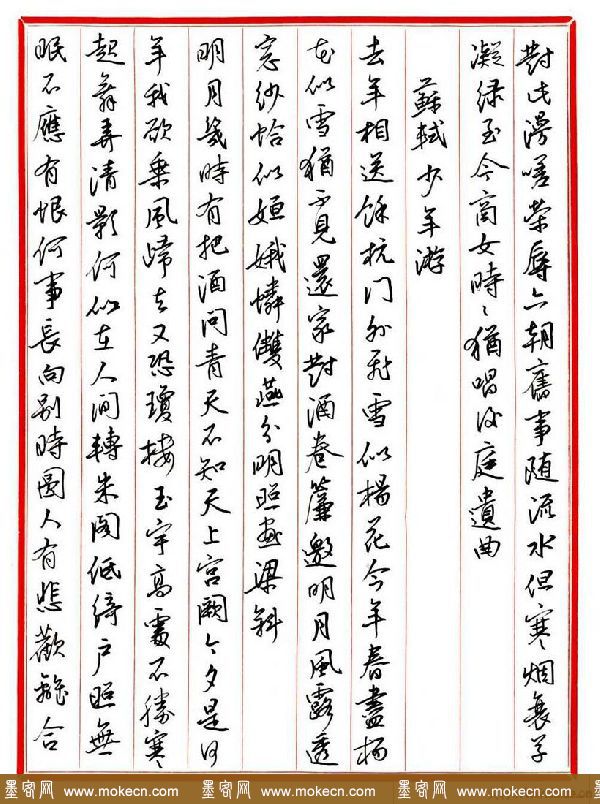 對此漫嗟榮辱六朝舊事随流水但寒烟衰草
凝绿至今商女時々猶唱後庭遺曲
蘇軾 少年游
去年相送馀杭门外飛雪似楊花今年春盡杨
花似雪猶不見還家對酒卷簾邀明月風露透
窓纱恰似姮娥憐雙燕分明照畫梁斜
明月幾時有把酒问青天不知天上宫阙今夕是何
年我欲乘風歸去又恐瓊楼玉宇高處不勝寒
起舞弄清影何似在人间轉朱阁低绮户照無
眠不應有恨何事長向别時圆人有悲歡離合
墨客网 www.mokecn.com 墨客网 www.mokecn.com 墨客网 www.mokecn.com